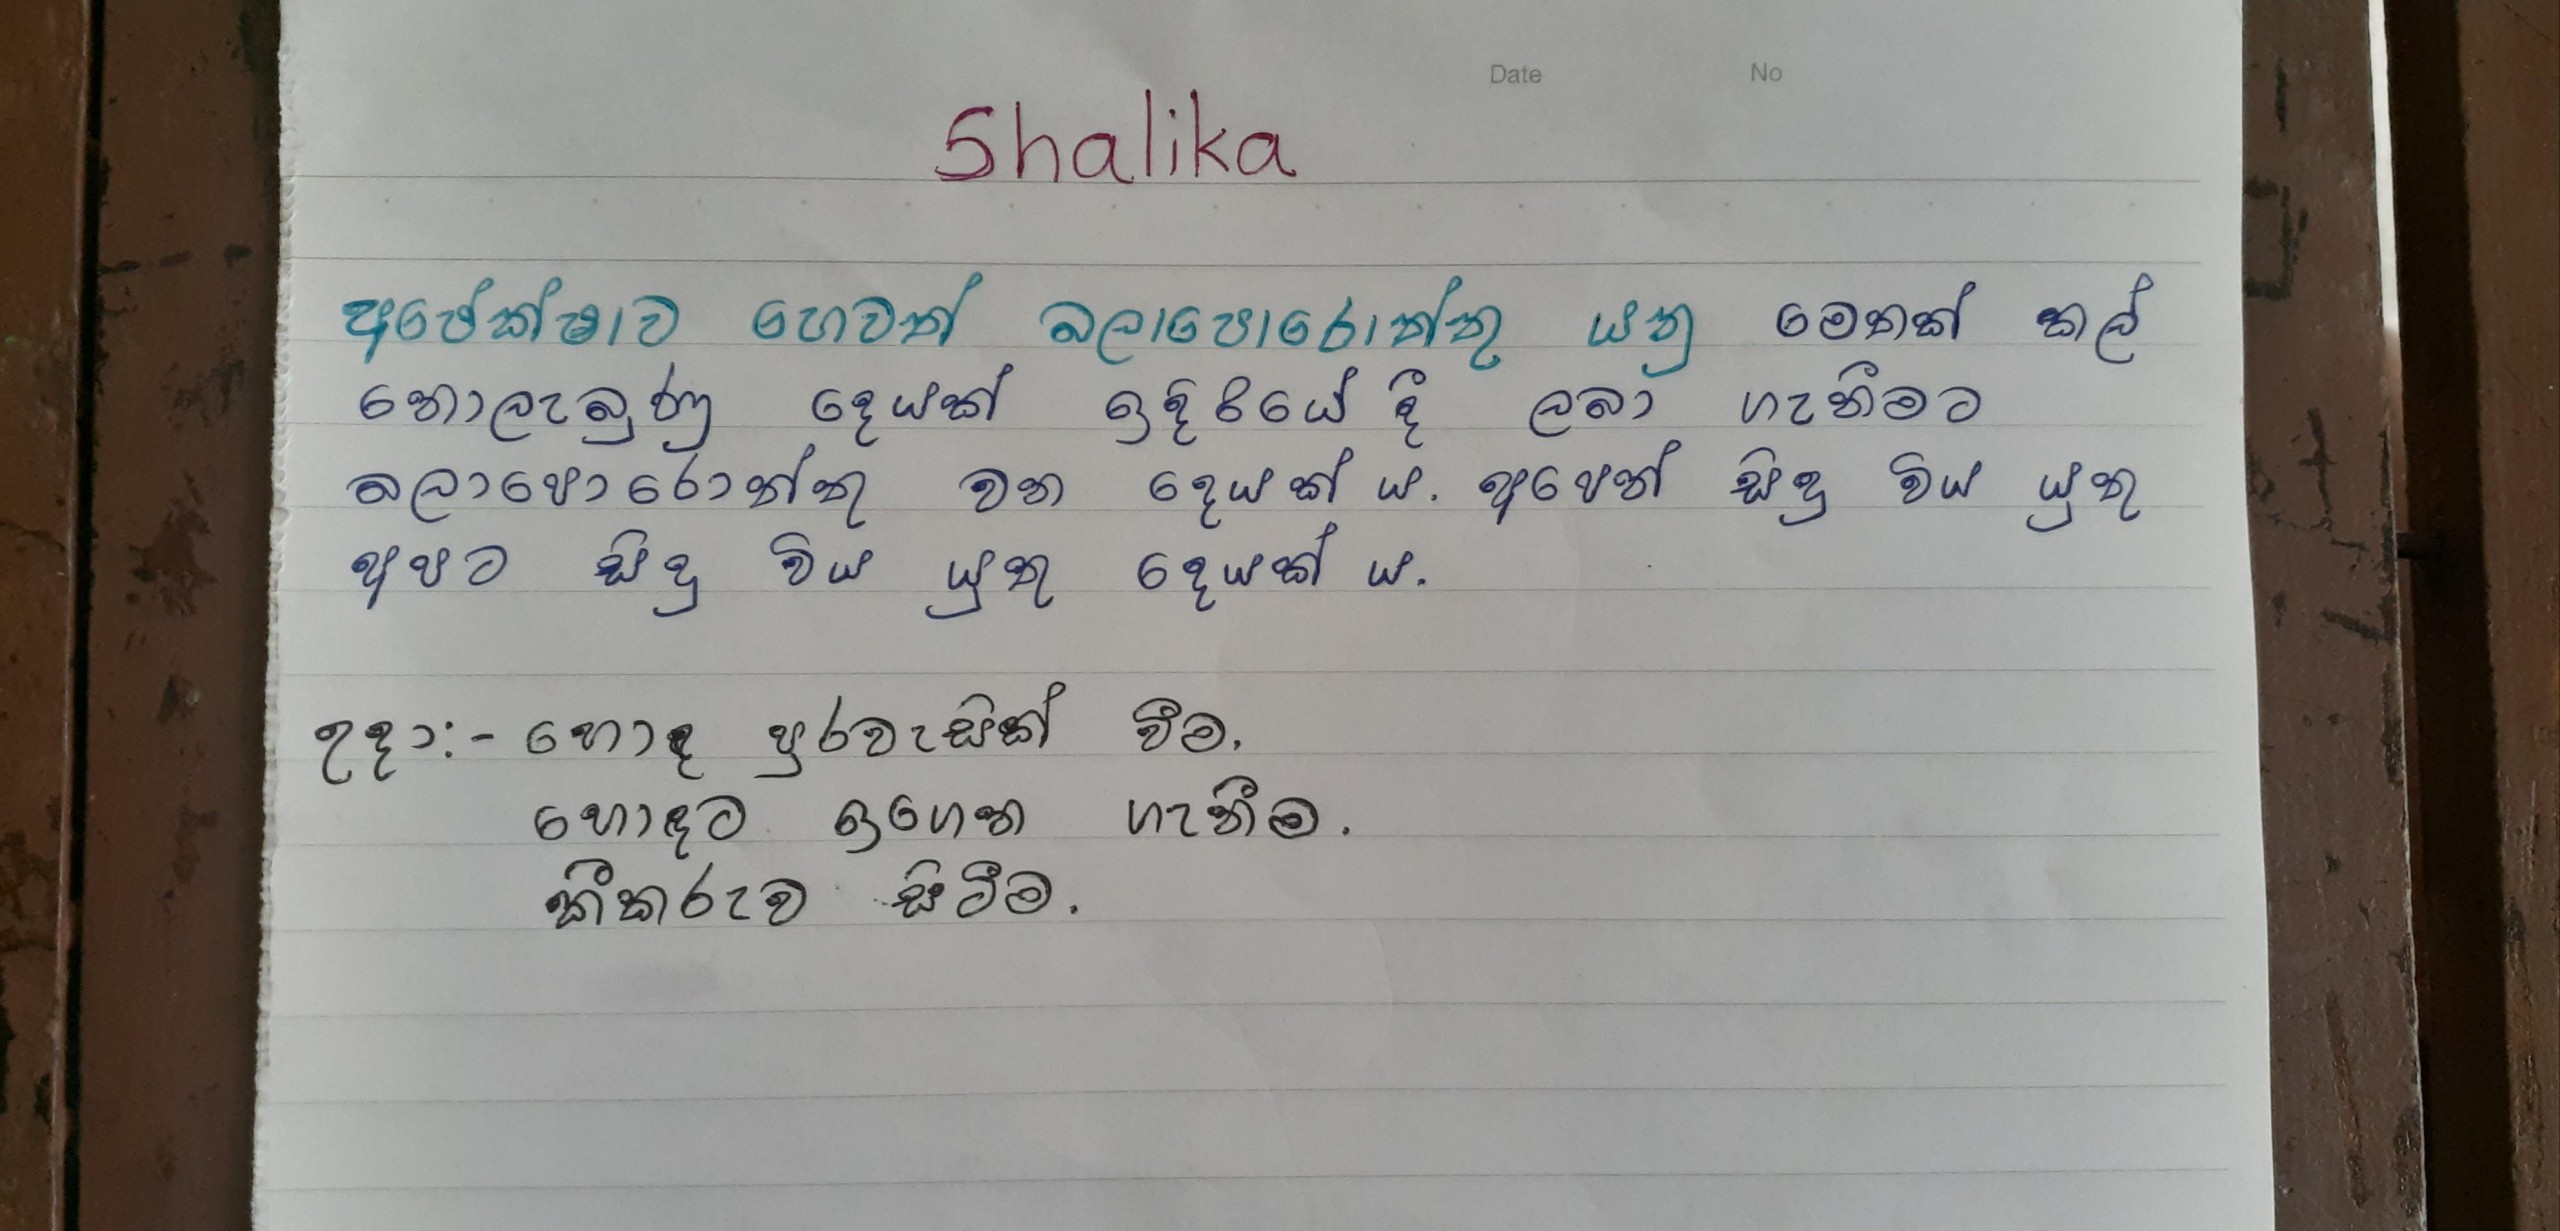 Date No
Shalika
අපේක්ෂාව හෙවත් බලාපොරොත්තු යනු මෙතක් කල්
නොලැබුණු දෙයක් ඉදිරියේ දී ලබා ගැනීමට
බලාපොරොත්තු වන දෙයක් ය. අපෙන් සිදු විය යුතු
අපට සිදු විය යුතු දෙයක් ය.
උදා:- හොඳ පුරවැසියෙක් වීම.
හොඳට ඉගෙන ගැනීම.
කීකරුව සිටීම.